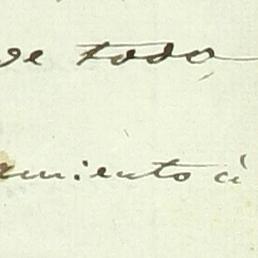 de todo
amiento á